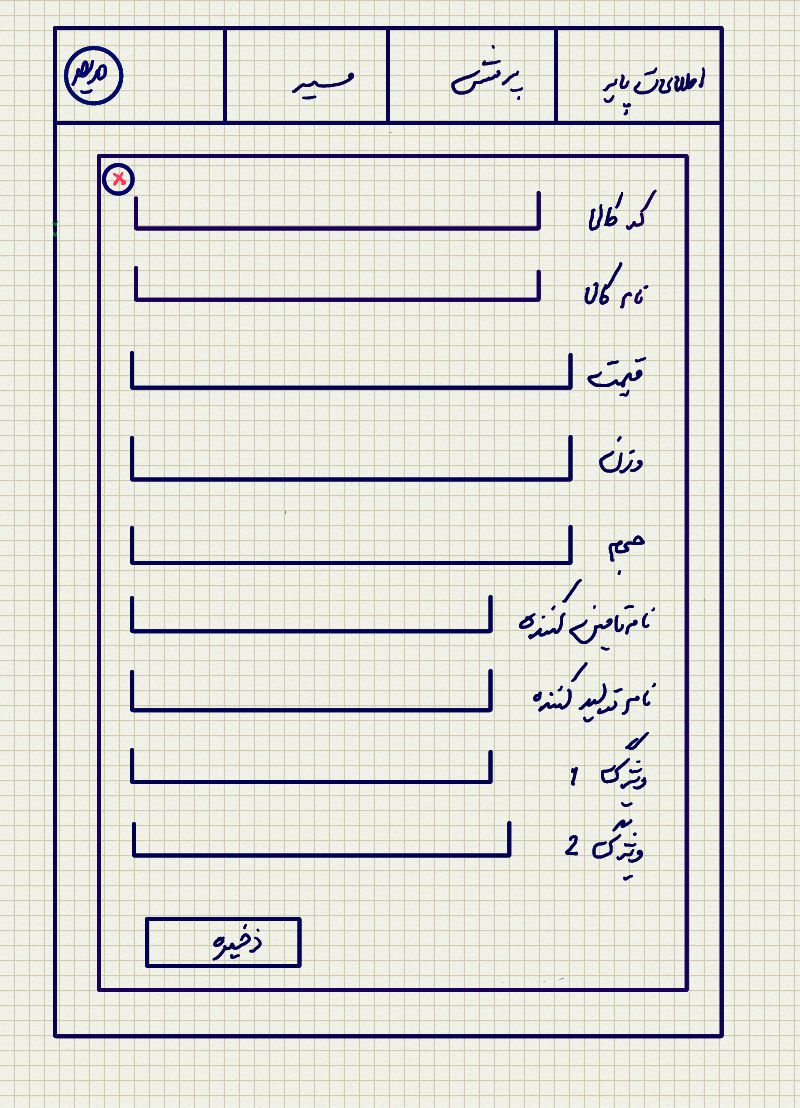 اطلاعات پایه
پرسش
مسیر
مریم
x
کد کالا
نام کالا
قیمت
وزن
حجم
نام تامین کننده
نام تولید کننده
ویژگی 1
ویژگی 2
ذخیره